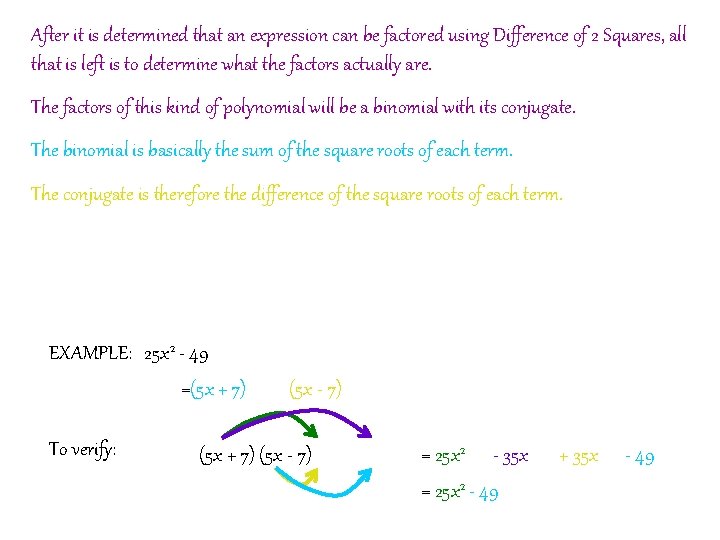 After it is determined that an expression can be factored using Difference of 2 Squares, all
that is left is to determine what the factors actually are.
The factors of this kind of polynomial will be a binomial with its conjugate.
The binomial is basically the sum of the square roots of each term.
The conjugate is therefore the difference of the square roots of each term.
EXAMPLE: 25x² - 49
=(5x + 7) (5x - 7)
To verify: (5x + 7) (5x - 7) = 25x² - 35x + 35x - 49
= 25x² - 49